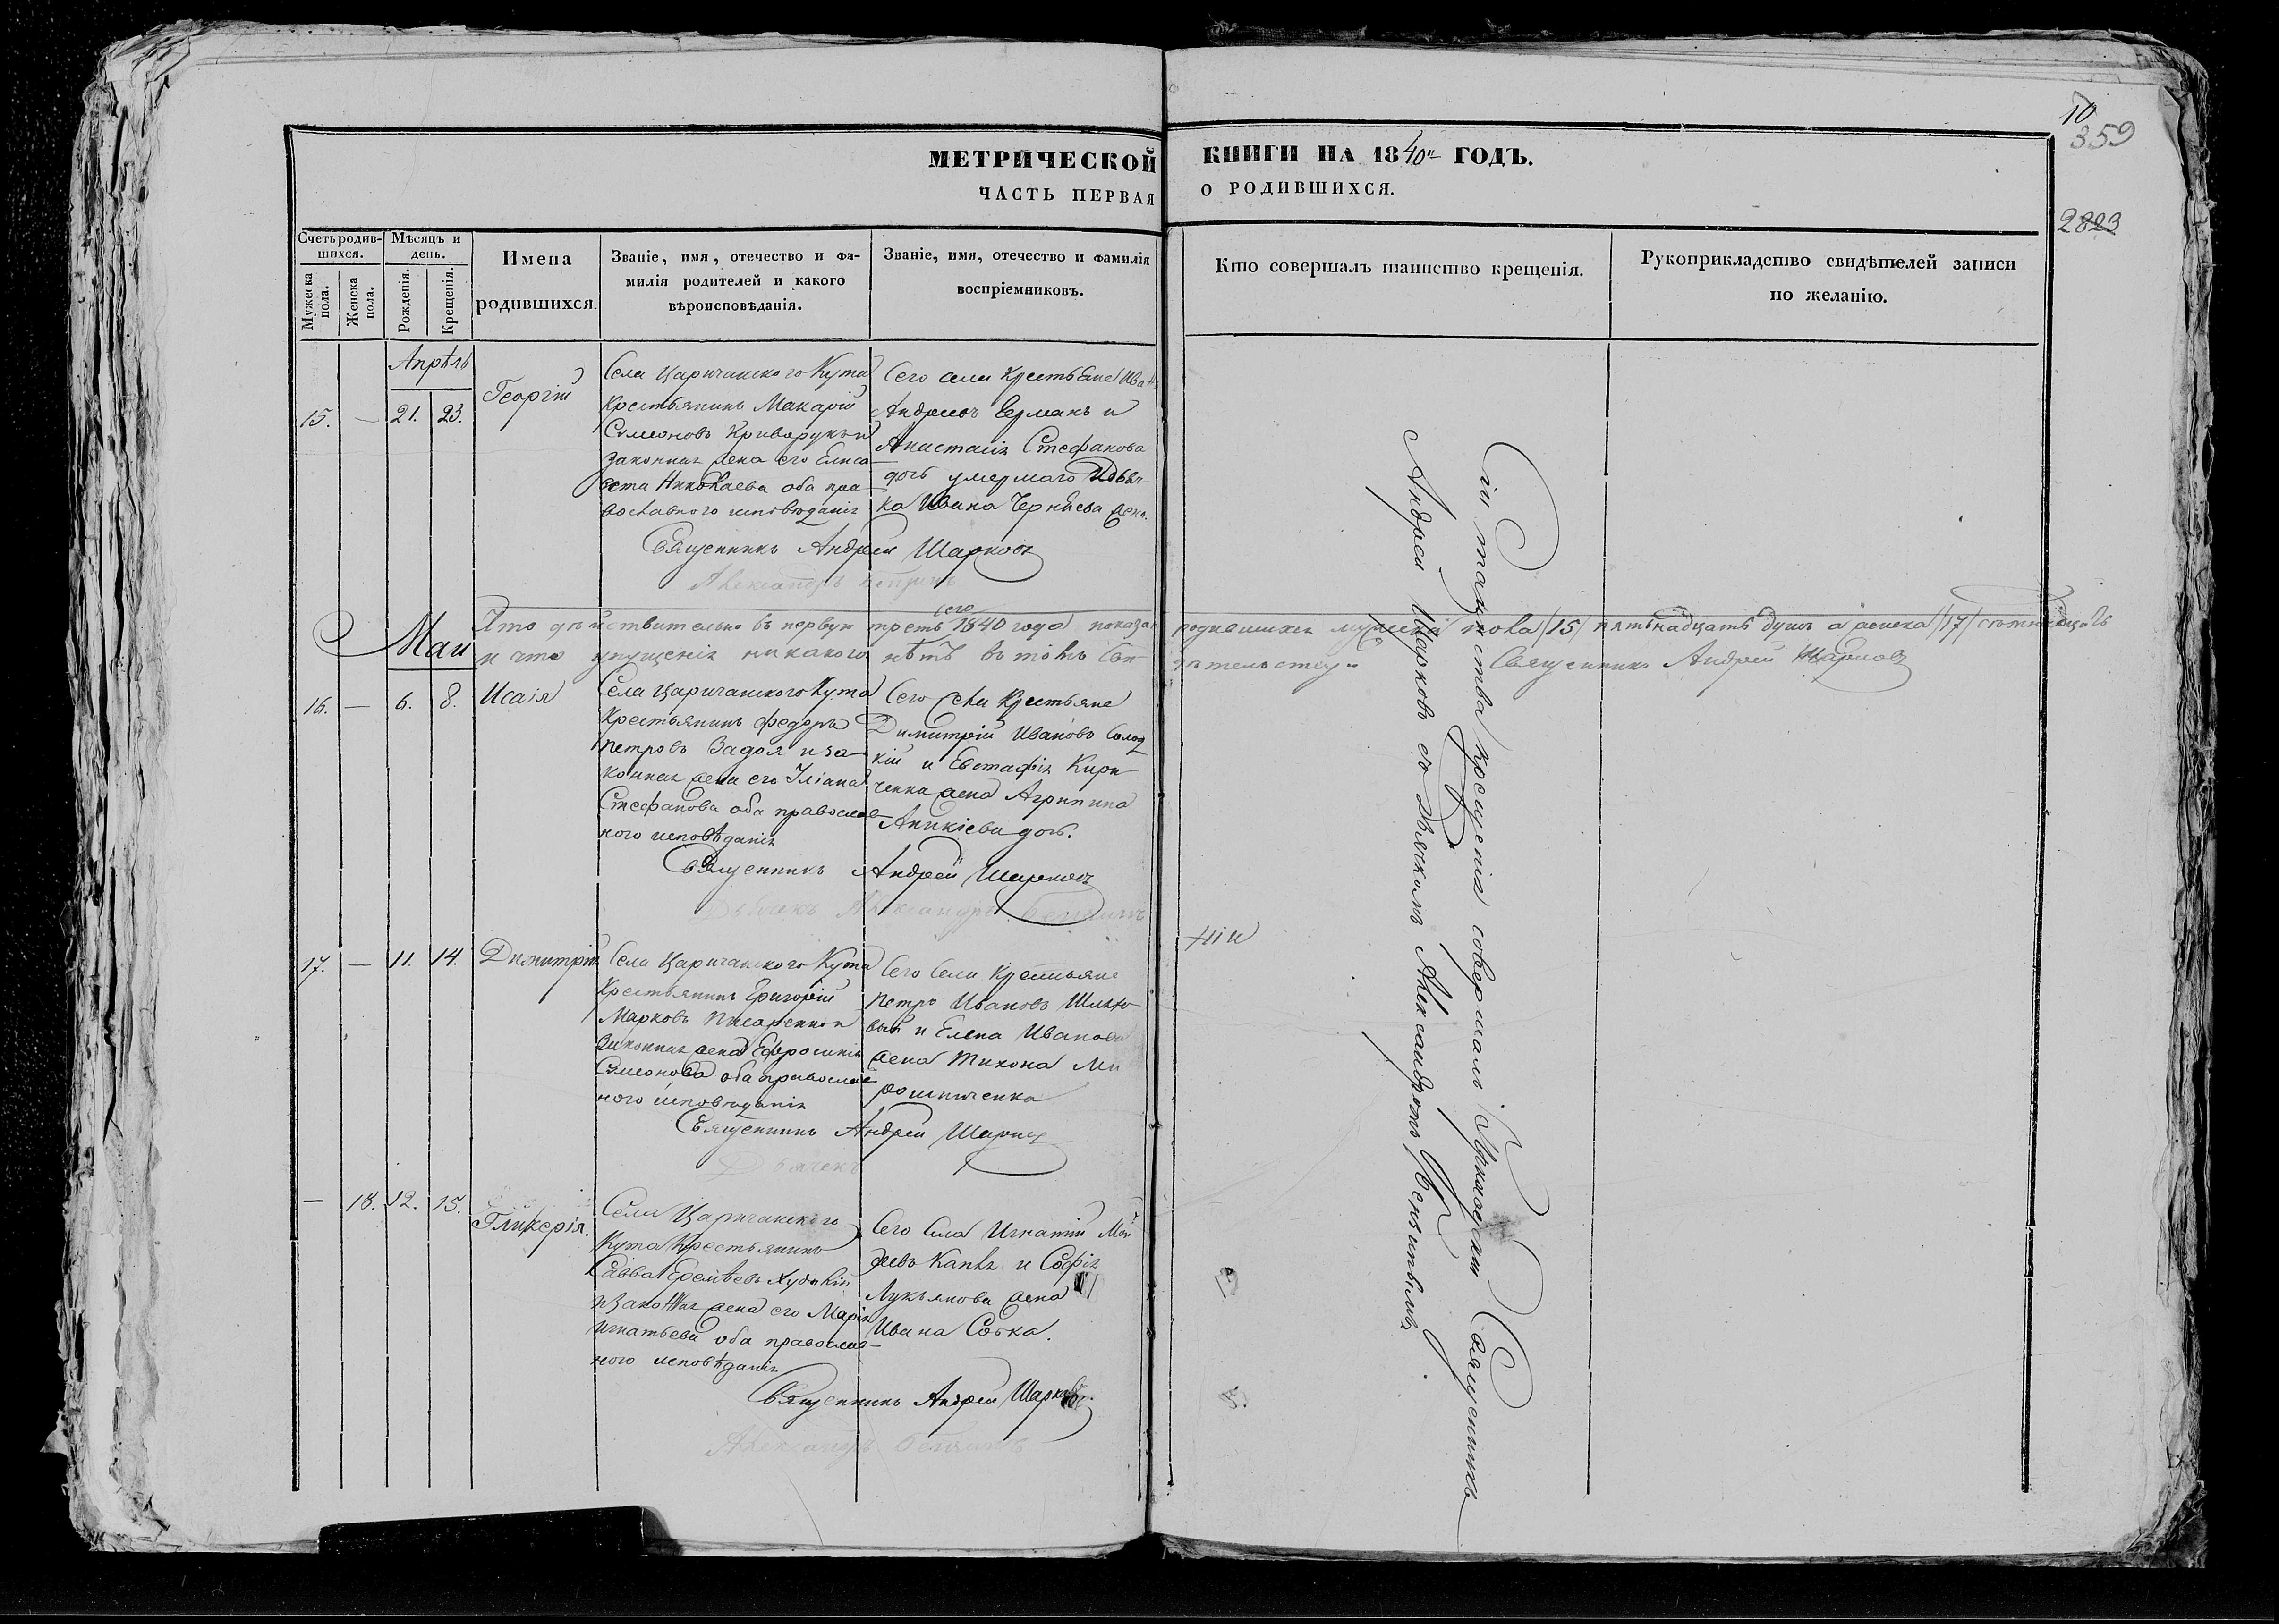 10
359
2823
МЕТРИЧЕСКОЙ КНИГИ НА 1840й ГОДЪ.
ЧАСТЬ ПЕРВАЯ О РОДИВШИХСЯ.
Счетъ родив-
шихся.
Мужеска пола.
Женска пола.
Мѣсяцъ и
день.
Рожденія.
Крещенія.
Имена
родившихся.
Званіе, имя, отечество и фа-
милія родителей и какого
вѣроисповѣданія.
Званіе, имя, отечество и фамилія
воспріемниковъ.
Кто совершалъ таинство крещенія.
Рукоприкладство свидѣтелей записи
по желанію.
Апрѣль
15. — 21. 23.
Георгій
Села Царичанского Кута
Крестьянинъ Макарій
Сѵмеоновъ Криворукъ и
законная жена его Елиса
вета Николаева оба пра-
вославного исповѣданія
Сего села Крестьяне Иванъ
Андреевъ Ермакъ и
Анастасія Стефанова
дочь умершаго
ка Ивана Черняева жена.
Священникъ Андрей Шарковъ
Александръ
Май
Что дѣйствительно въ первую треть сего 1840 года показан родившихся мужеска пола /15/ пятьнадцать душъ а женска /17/
и что упущенія никакого нѣтъ въ томъ Сви- дѣтельствую Священникъ Андрей Шарковъ
16. — 6. 8. Исаія
Села Царичанского Кута
Крестьянинъ Федоръ
Петровъ Задоя и за-
конная жена его Іуліана
Стефанова оба православ-
ного исповѣданія
Сего села Крестьяне
Димитрій Ивановъ Солод
кій и Евстафія Кири-
ченка жена Агрипина
Аникіева дочь.
Священникъ Андрей Шарковъ
Дьячекъ Александръ
17. — 11. 14. Димитрій
Села Царичанского Кута
Крестьянинъ Григорій
Марковъ Писаренко и
законная жена Ефросинія
Сѵмеонова оба православ
ного исповѣданія
Сего села Крестьяне
Петро Ивановъ
вый и Елена Иванова
жена Тихона Ми
рошниченка
нiи
Священникъ Андрей Шарковъ
Дьячекъ
— 18. 12. 15.
Гликерія.
Села Царичанского
Кута Крестьянинъ
Савва Еремѣевъ
и законная жена его Марія
Игнатьева оба православ-
ного исповѣданія
Сего села Игнатій
Капля и Софія
Лукьянова жена
Ивана Совка.
Священникъ Андрей Шарковъ.
Александръ
Сіи таинства крещенія совершалъ Священникъ
Андрей Шарковъ съ Дьячкомъ Александромъ